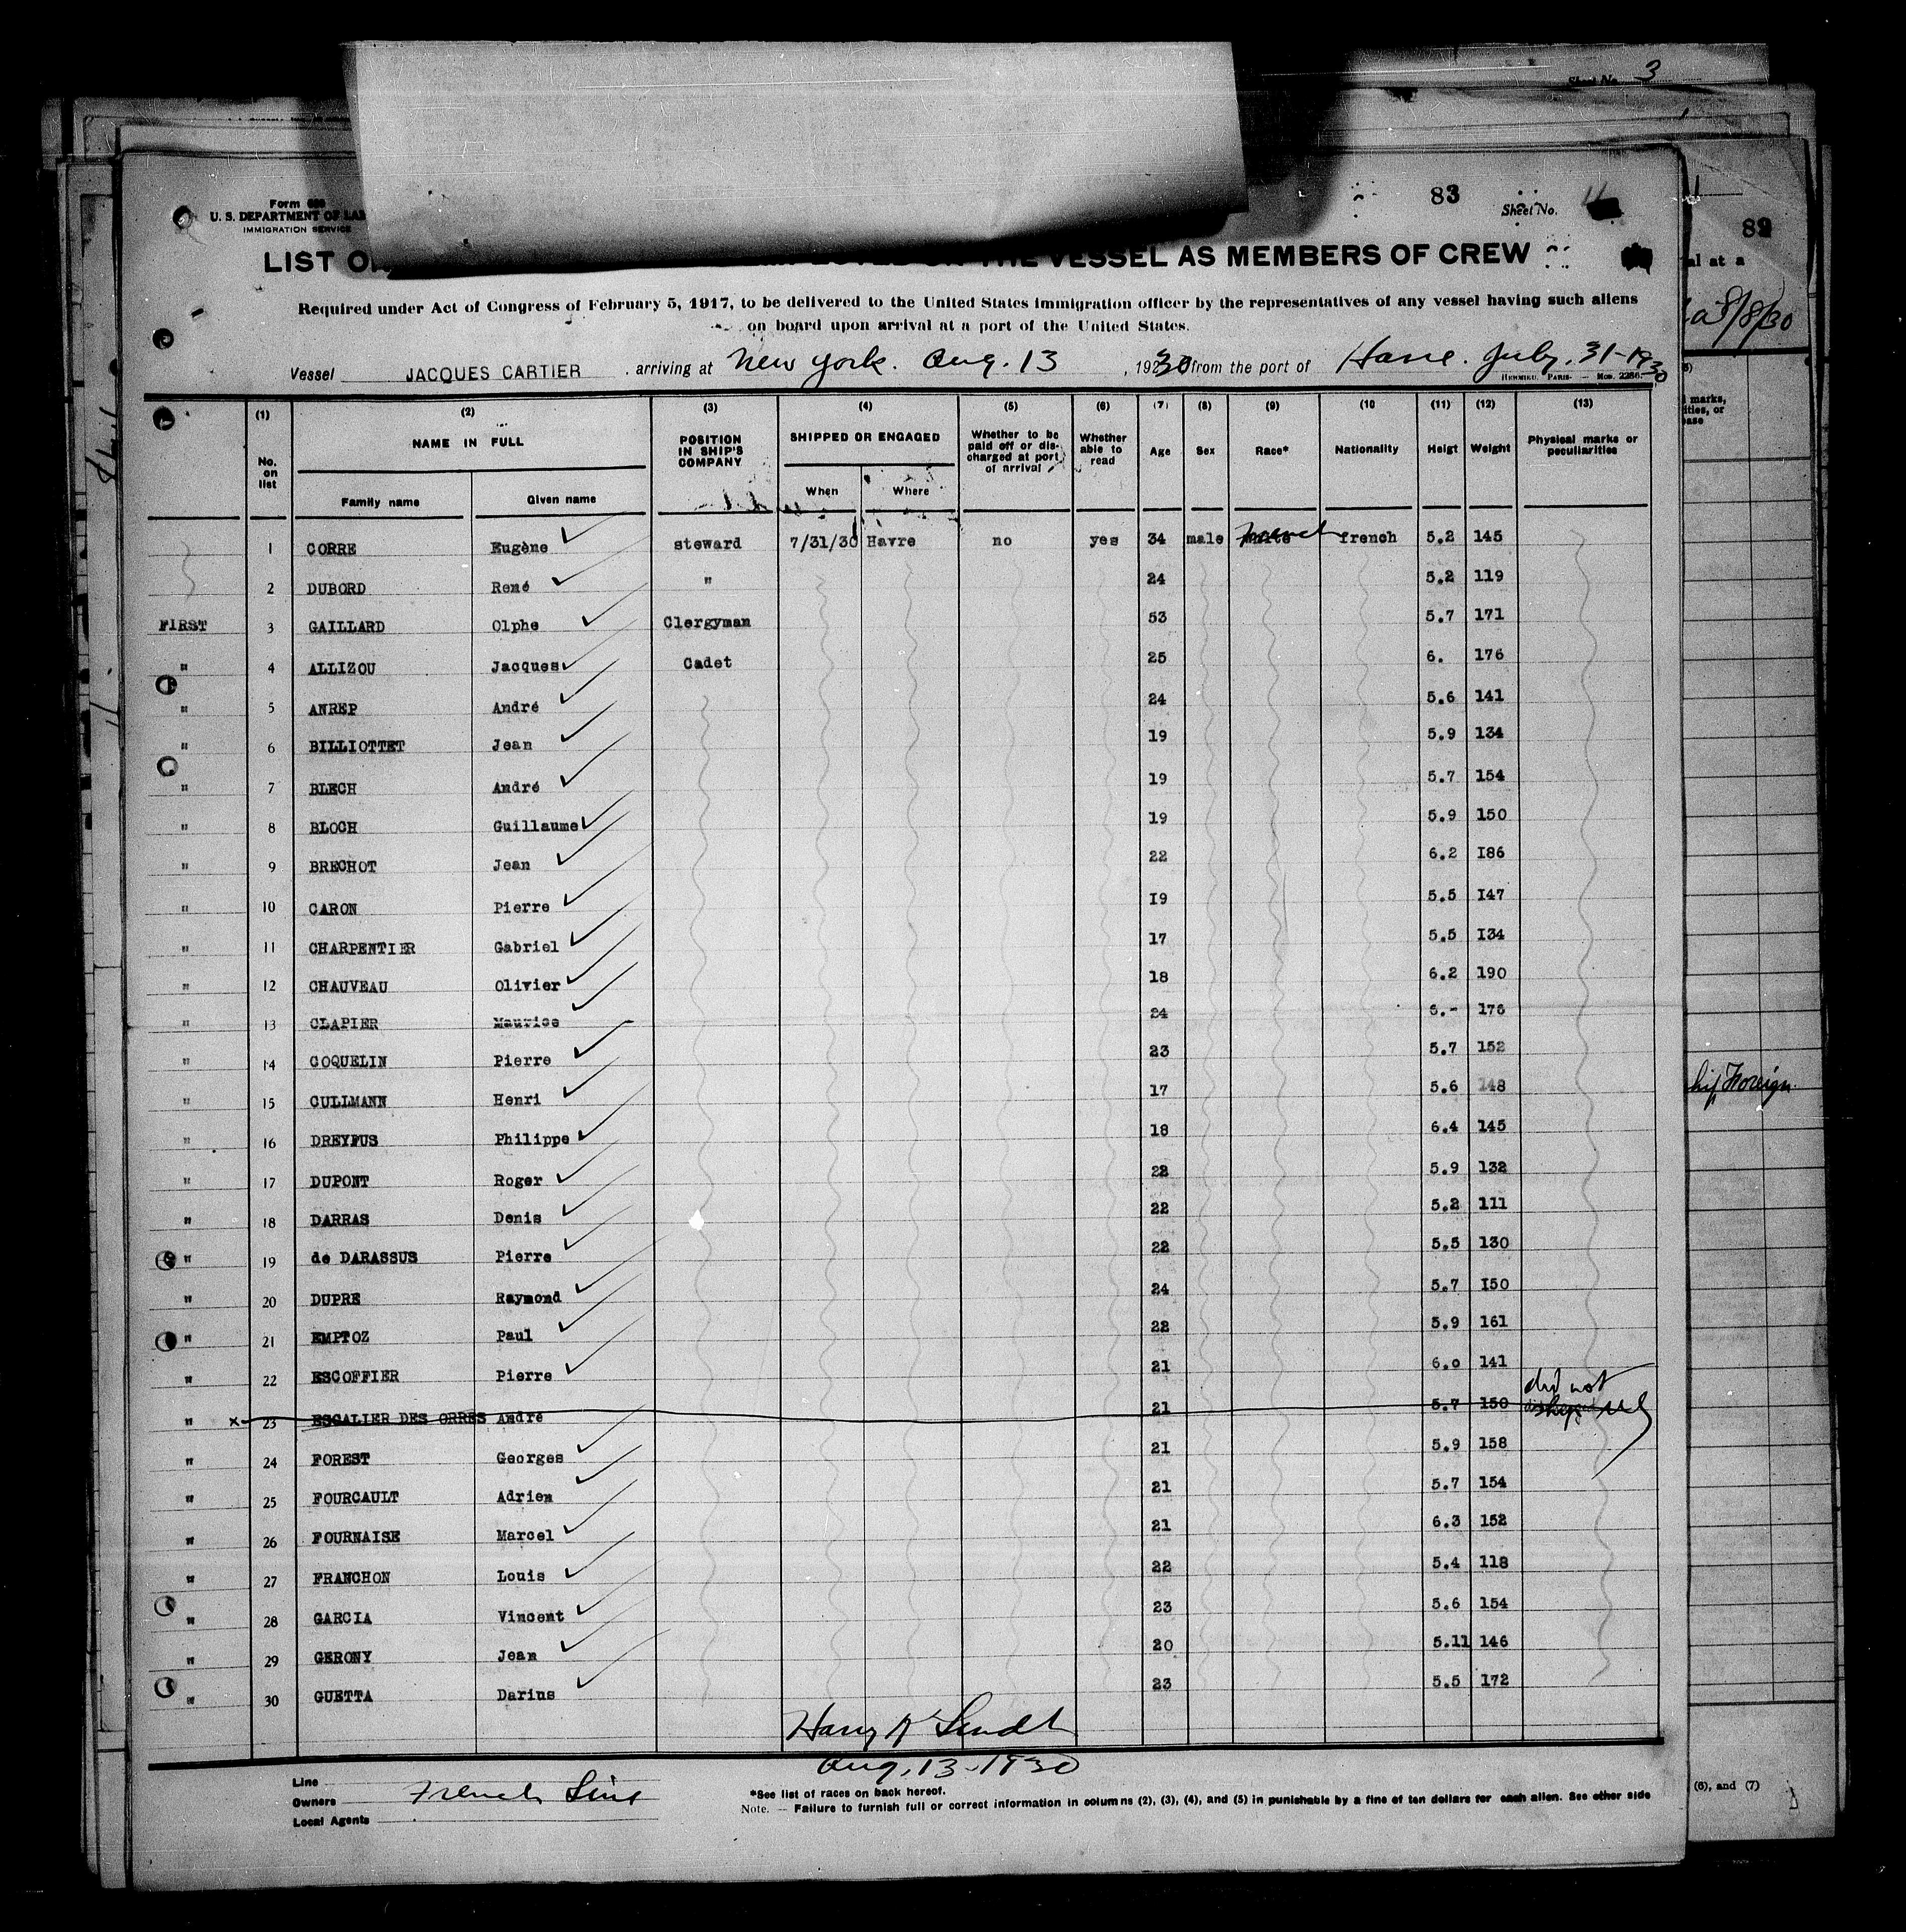 Sheet No. 3
Form
U. S. DEPARTMENT OF LAB
IMMIGRATION SERVICE
83
Sheet No. 4
LIST O THE VESSEL AS MEMBERS OF CREW
Required under Act of Congress of February 5, 1917, to be delivered to the United States immigration officer by the representatives of any vessel having such aliens
on board upon arrival at a port of the United States.
Vessel JACQUES CARTIER . arriving at New York. Aug. 13 , 1930 from the port of Havre. July. 31-1930
HERMIEU. PARIS- — MOD. 2286.
(1) (2) (3) (4) (5) (6) (7) (8) (9) (10 (11) (12) (13)
No. on list NAME IN FULL POSITION IN SHIP'S COMPANY SHIPPED OR ENGAGED Whether to be paid off or discharged at port of arrival Whether able to read Age Sex Race* Nationality Heigt Weight Physical marks or peculiarities
Family name Given name When Where
1 CORRE Eugène steward 7/31/30 Havre no yes 34 male french french 5.2 145
2 DUBORD René " 24 5.2 119
FIRST 3 GAILLARD Olphe Clergyman 53 5.7 171
" 4 ALLIZOU Jacques Cadet 25 6. 176
" 5 ANREP André 24 5.6 141
" 6 BILLIOTTET Jean 19 5.9 134
" 7 BLECH André 19 5.7 154
" 8 BLOCH Guillaume 19 5.9 150
" 9 BRECHOT Jean 22 6.2 I86
" 10 CARON Pierre I9 5.5 I47
" 11 CHARPENTIER Gabriel 17 5.5 I34
" 12 CHAUVEAU Olivier 18 6.2 190
" 13 CLAPIER Maurice 24 6.- 176
" 14 COQUELIN Pierre 23 5.7 152
" 15 CULLMANN Henri 17 5.6 148
" 16 DREYFUS Philippe 18 6.4 145
" 17 DUPONT Roger 22 5.9 132
" 18 DARRAS Denis 22 5.2 111
" 19 de DARASSUS Pierre 22 5.5 130
" 20 DUPRE Raymond 24 5.7 I50
" 21 EMPTOZ Paul 22 5.9 161
" 22 ESCOFFIER Pierre 21 6.0 141
" x 23 ESCALIER DES ORRES André 21 5.7 150 did not
" 24 FOREST Georges 21 5.9 158
" 25 FOURCAULT Adrien 21 5.7 154
" 26 FOURNAISE Marcel 21 6.3 152
" 27 FRANCHON Louis 22 5.4 118
" 28 GARCIA Vincent 23 5.6 154
" 29 GERONY Jean 20 5.11 146
" 30 GUETTA Darius 23 5.5 172
Aug. 13-1930
Line
Owners French Line
Local Agents
*See list of races on back hereof.
Note. — Failure to furnish full or correct information in columns (2), (3), (4), and (5) in punishable by a fine of ten dollars for each alien. See other side
al at a
8/8/30
marks,
ities, or
ease
Foreign
(6), and (7)